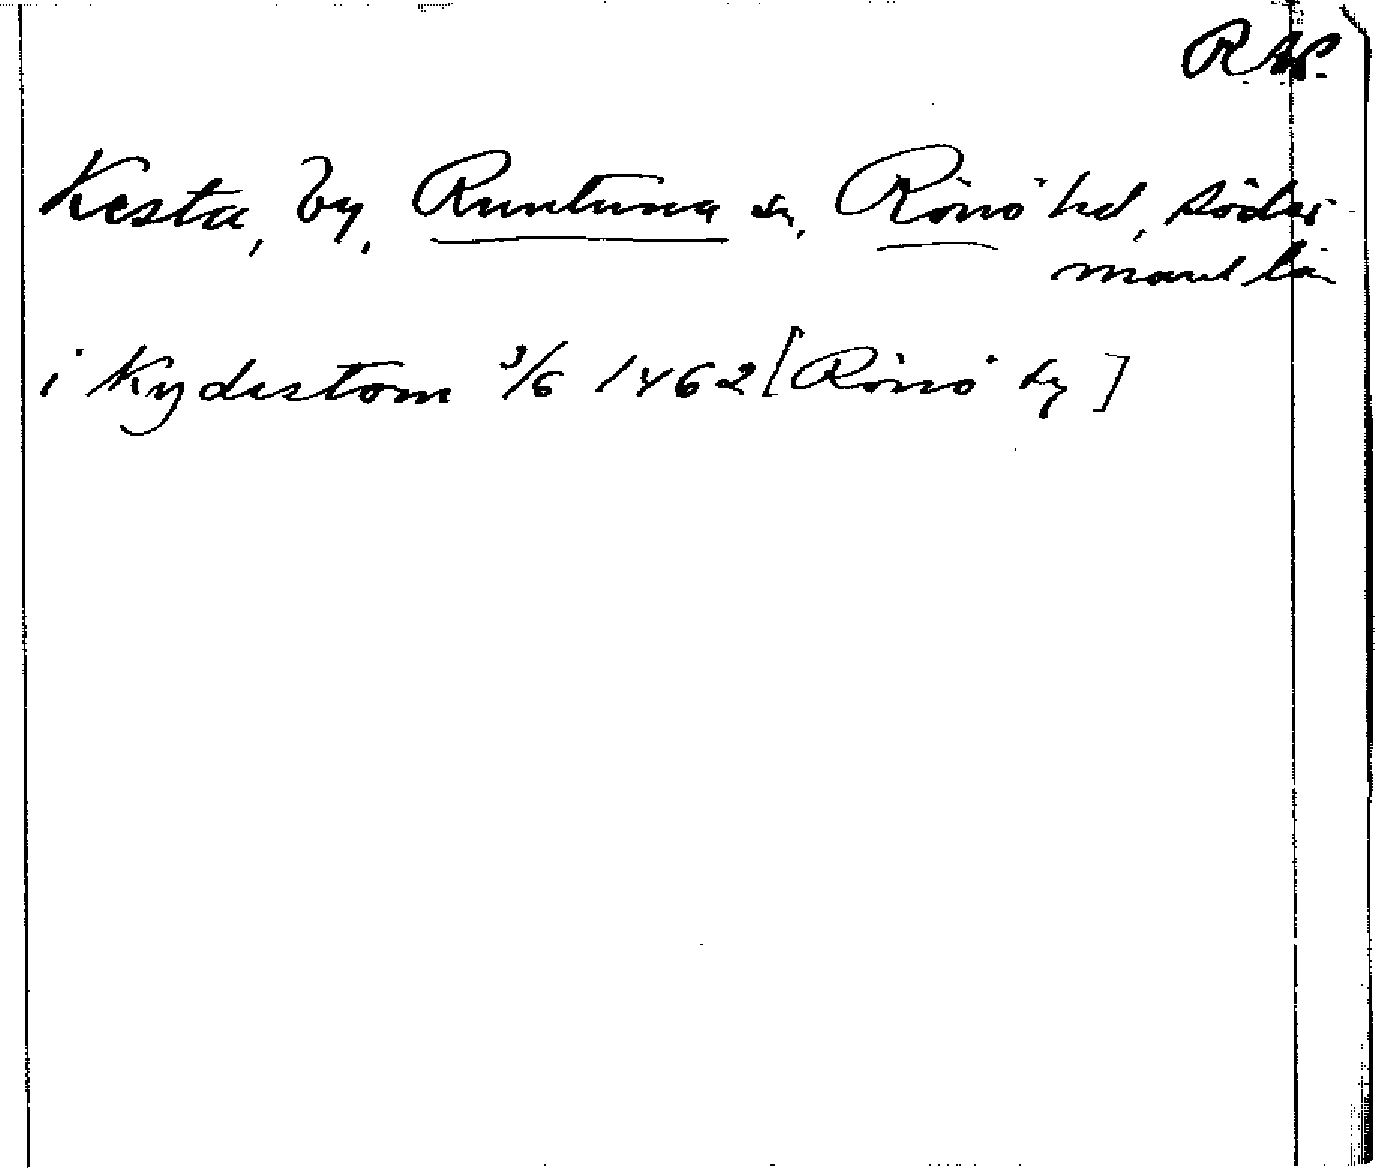 RAP.
Kesta, by, Runtuna sn, Rönö hd, Söder-
manl län
i Kydestom 3/6 1462 [Rönö hz]